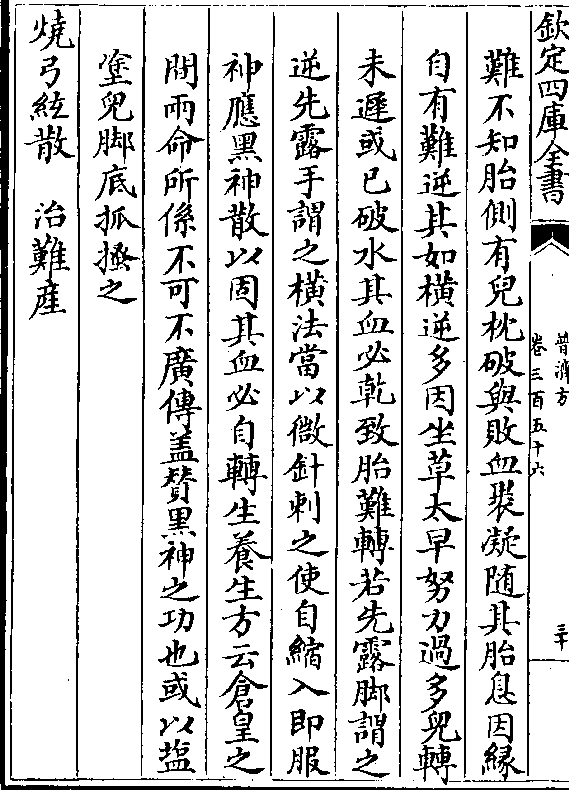 欽定四庫全書
普濟方
卷三百五十六
三十
難不知胎側有兒枕破與敗血裂凝随其胎息因縁
自有難逆其如横逆多因坐草太早努力過多兒轉
未遲或已破水其血必乾致胎難轉若先露脚謂之
逆先露手謂之横法當以微針刺之使自縮入即服
神應黑神散以固其血必自轉生養生方云倉皇之
間兩命所係不可不廣傳盖賛黑神之功也或以塩
塗兒脚底抓搔之
燒弓絃散　治難産